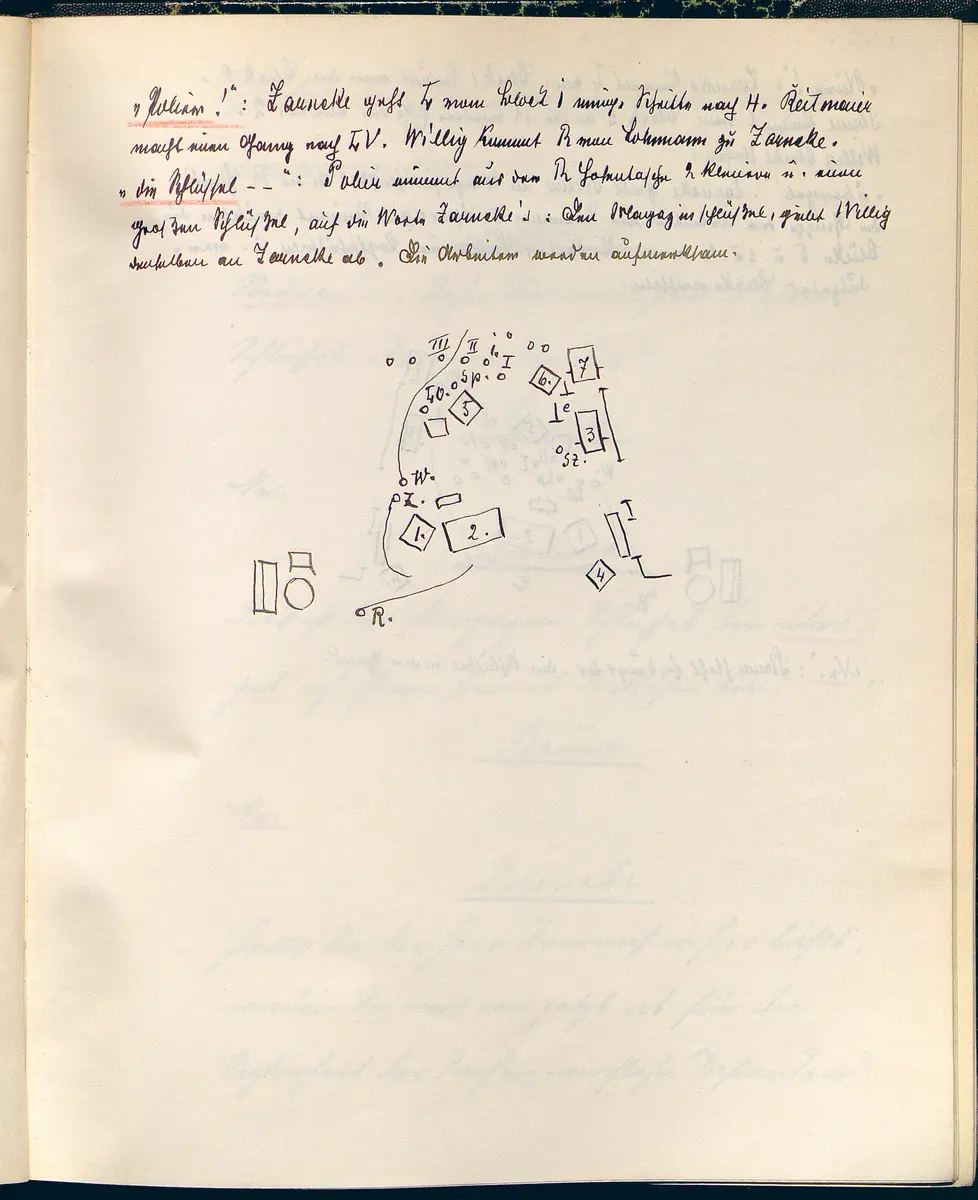 „Polier!“: Zarncke geht L vom Block 1 einige Schritte nach H. Reitmaier
macht einen Gang nach LV. Willig kommt R von Lohmann zu Zarncke.
„die Schlüssel – –“: Polier nimmt aus der R Hosentasche 2 kleinere u. einen
großen Schlüßel, auf die Worte Zarncke's: Den Magazinschlüßel, giebt Willig
denselben an Zarncke ab. Die Arbeiter werden aufmerksam.
III II I
Lo. Sp.
5 6. 7
e 3
Sz.
W.
Z.
1. 2.
4
R.